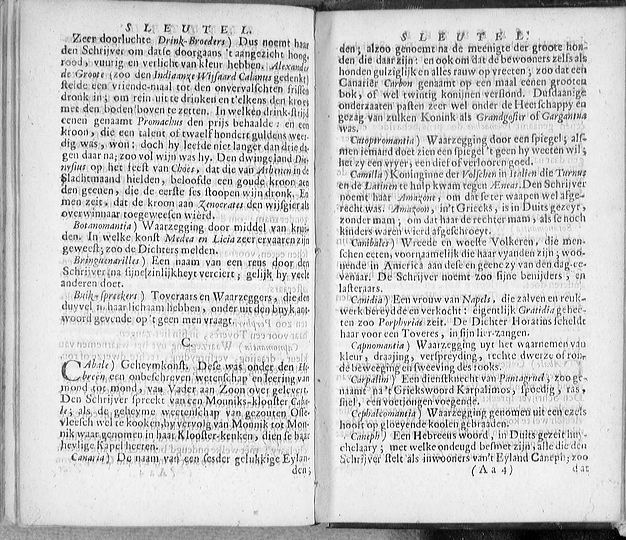 SLEUTEL.
Zeer doorluchte Drink-Broeders) Dus noemt haar
den Schrijver om datse doorgaans 't aangezicht hoog
rood, vuurig en verlicht van kleur hebben. Alexander
de Groote (zoo den Indiaanze Wijsaard Calanus gedenkt)
stelde een vriende-maal tot den onvervalschten frissen
dronk in; om rein uit te drinken en t'elkens den kroes
met den bodem boven te zetten. In welken drink-strijd
eenen genaamt Promachus den prijs behaalde: en een
kroon, die een talent of twaelf hondert guldens weer-
dig was, won: doch hy leefde niet langer dan drie da-
gen daar na; zoo vol wijn was hy. Den dwingeland Dio-
nysius op het feest van Choës, dat die van Athenen in de
Slachtmaand hielden, beloofde een goude kroon aen
den geenen, die de eerste ses stoopen wijn dronk. En
men zeit, dat de kroom aan Zenocrates den wijsgier als
overwinnaar toegeweesen wierd.
Botanomantia) Waarzegging door middel van krui-
den. In welke konst Medea en Licia zeer ervaaren zijn
geweest; zoo de Dichters melden.
Bringuenarilles) Een naam van een reus door den
Schrijver na sijne zinlijkheyt verciert; gelijk hy veele
anderen doet.
Buik-spreekers) Toveraars en Waarzeggers, die den
duyvel in haar lichaam hebben, onder uit den buyk ant-
woord gevende op 't geen men vraagt.
C.
CAbale) Geheymkonst. Dese was onder den He-
breën een onbeschreven wetenschap en leering van
mond tot mond, van Vader aan Zoon over gelevert.
Den Schrijver spreekt van een Monniks-klooster Caba-
le; als de geheyme weetenschap van gezouten Osse-
vleesch wel te kooken, by vervolg van Monnik tot Mon-
nik waar genomen in haar Klooster-keuken, dien se haar
heylige Kapel heeten.
Canaria) De naam van een sesder gelukkige Eylan-
den;
SLEUTEL.
den; alzoo genoemt na de meenigte der groote hon-
den die daar zijn: en ook om dat de bewooners zelfs als
honden gulziglijk en alles rauw op vreeten; zoo dat een
Canariër Carbon genaamt op een maal eenen grooten
bok, of wel twintig konijnen verslond. Dusdaanige
onderzaaten pasten zeer wel onder de Heerschappy en
gezag van zulken Konink als Grandgosier of Gargantua
was.
Catoptromantia) Waarzegging door een spiegel; als-
men iemand doet zien een spiegel 't geen hy weeten wil;
het zy een vryer, een dief of verlooren goed.
Camilla) Koninginne der Volschen in Italien die Turnus
en de Latinen te hulp kwam tegen Æneas. Den Schrijver
noemt haar Amazone, om dat se ter waapen wel afge-
recht was. Amazoon, in't Grieks, is in Duits gezeyt,
zonder mam; om dat haar de rechter mam, als se noch
kinders waren wierd afgeschoeyt.
Canibales) Wreede en woeste Volkeren, die men-
schen eeten, voornaamelijk die haar vyanden zijn; woo-
nende in America aan dese en geene zy van den dag-ee-
venaar. De Schrijver noemt zoo sijne benijders, en
lasteraars.
Canidia) Een vrouw van Napels, die zalven en reuk-
werk bereydde en verkocht: eigentlijk Gratidia gehee-
ten zoo Porphyrius zeit. De Dichter Horatius scheldt
haar voor een Toveres, in sijn lier-zangen.
Capnomantia) Waarzegging uyt het waarnemen van
kleur, draajing, verspreyding, rechte dwerze of ron-
de beweeging en sweeving des rooks.
Carpalim) Een dienstknecht van Pantagruel; zoo ge-
naamt na 't Griekswoord Karpalimos, spoedig, ras,
snel, een voetjongen voegende.
Cephaleomantia) Waarzegging genomen uit een ezels
hooft op gloeyende koolen gebraaden.
Caneph) Een Hebreeus woord, in Duits gezeit huy-
chelaary; met welke ondeugd besmet zijn, alle die den
Schrijver stelt als inwooners van't Eyland Caneph; zoo
(Aa 4) dat